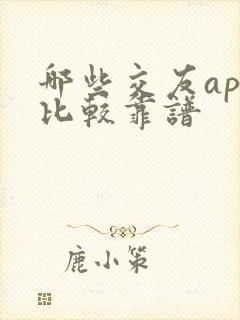 哪些交友ap
比較靠譜
鹿小策